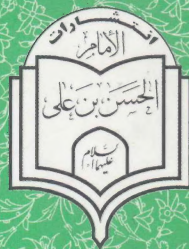 انتشارات
الامام
الحسن بن علی
علیهما السلام